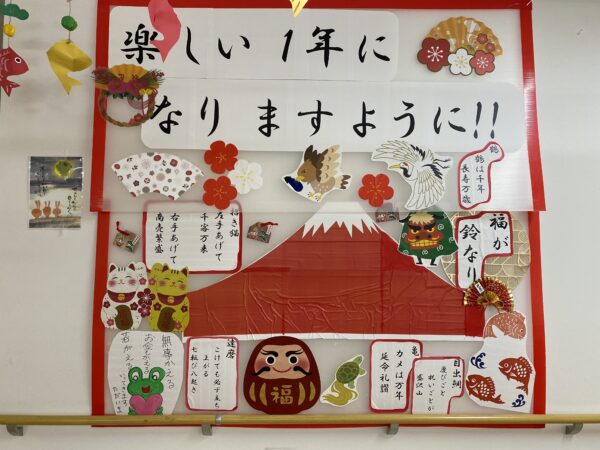 楽しい1年に
なりますように!!
鶴
鶴は千年
長寿万歳
招き猫
左手あげて
千客万来
右手あげて
商売繁盛
福が
鈴なり
無事かえる
お金がかえる
若がえる
達磨
こけても必ず立ち
上がる
七転び八起き
福
亀
カメは万年
延命礼讃
目出鯛
度びごと
祝いごとが
盛沢山